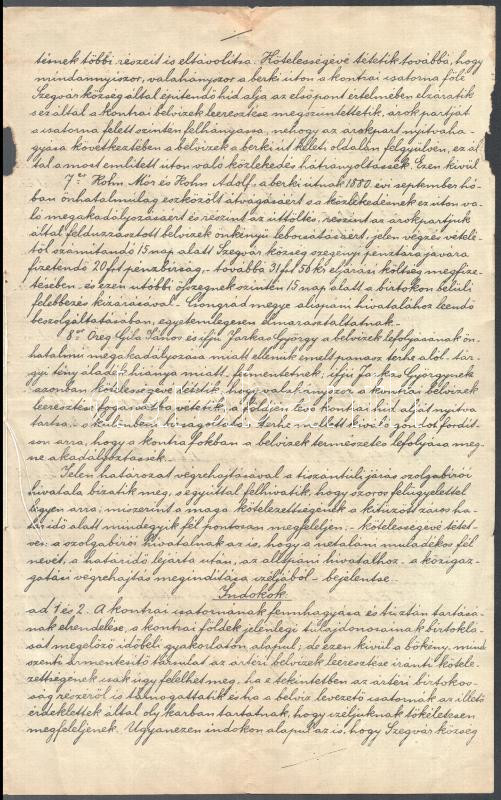 tésnek többi részeit is eltávolitsa. Kötelességévé tétetik továbbá, hogy
mindannyiszor, valahányszor a berki úton a kontrai csatorna fölé
Szegvár község által épitendő hid alja az első pont értelmében elzáratik
s ez által a kontrai belvizek leeresztése megszüntettetik, árokpartját
a csatorna felett szintén felhányassa, nehogy az árokpart nyitvaha-
gyása következtében a belvizek a berki út keleti oldalán felgyülvén, ez ál-
tal a most emlitett úton való közlekedés hátrányoltassék. Ezen kivül
7.er Kohn Mór és Kohn Adolf, a berki útnak 1880. évi september hó-
ban önhatalmulag eszközölt átvágásáért s a közlekedésnek ez úton va-
ló megakadályozásáért és részint az úttöltés, részint az árokpartjuk
által felduzzasztott belvizek önkényü lebocsátásáért, jelen végzés vétele-
től számitandó 15 nap alatt Szegvár község szegényi pénztára javára
fizetendő 20 frt pénzbirság,- továbbá 31 frt 50 kr eljárási költség megfize-
tésében,- és ezen utóbbi összegnek szintén 15 nap alatt a birtokon belüli
felebbezés kizárásával - Csongrád megye alispáni hivatalához leendő
beszolgáltatásában, egyetemlegesen elmarasztaltatnak.
8.or Öreg Gila János és ifju Farkas György a belvizek lefolyásának ön-
hatalmu megakadályozása miatt ellenük emelt panasz terhe alól - tár-
gyi tényálladék hiánya miatt - felmentetnek,
azonban kötelességévé tétetik, hogy valahányszor a kontrai belvizek
leeresztése foganatba vétetik, a földjén levő kontrai hid alját nyitva
tartsa, s különbeni birságoltatás terhe mellett kiváló gondot fordit-
son arra, hogy a kontra fokban a belvizek természetes lefolyása meg-
ne akadályoztassék.
Jelen határozat végrehajtásával a tiszántúli járás szolgabirói
hivatala bizatik meg, s egyuttal felhivatik, hogy szoros felügyelettel
legyen arra, miszerint a maga kötelezettségének a kitüzött záros ha-
táridő alatt mindegyik fél pontosan megfeleljen. - Kötelességévé tétet-
vén a szolgabirói hivatalnak az is, hogy a netaláni mulasztó fél
nevét, a határidő lejárta után, az alispáni hivatalhoz - a közigaz-
gatási végrehajtás meginditása czéljából - bejelentse.
Indokok.
ad 1 és 2. A kontrai csatornának fennhagyása és tisztán tartásá-
nak elrendelése, a kontrai földek jelenlegi tulajdonosainak birtoklá-
sát megelőző időbeli gyakorlaton alapul; de ezen kivül a bökény-mind-
szenti ármentesitő társulat az ártéri belvizek leeresztése iránti kötele-
zettségének csak úgy felelhet meg, ha e tekintetben az ártéri birtokos-
ság részéről is támogattatik és ha a belviz levezető csatornák az illető
érdeklettek által oly karban tartatnak, hogy czéljuknak tökéletesen
megfeleljenek. Ugyanezen indokon alapul az is, hogy Szegvár község